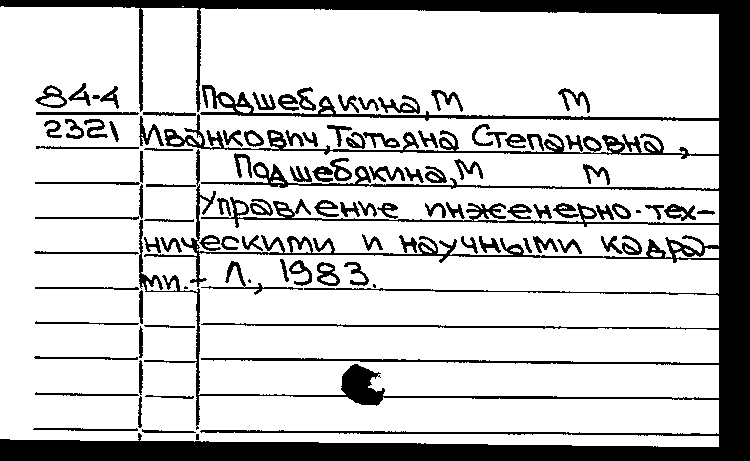 84-4 Подшебякина, М М
2321 Иванкович, Татьяна Степановна,
Подшебякина, М М
Управление инженерно-тех-
ническими и научными кадра-
ми.- Л., 1983.